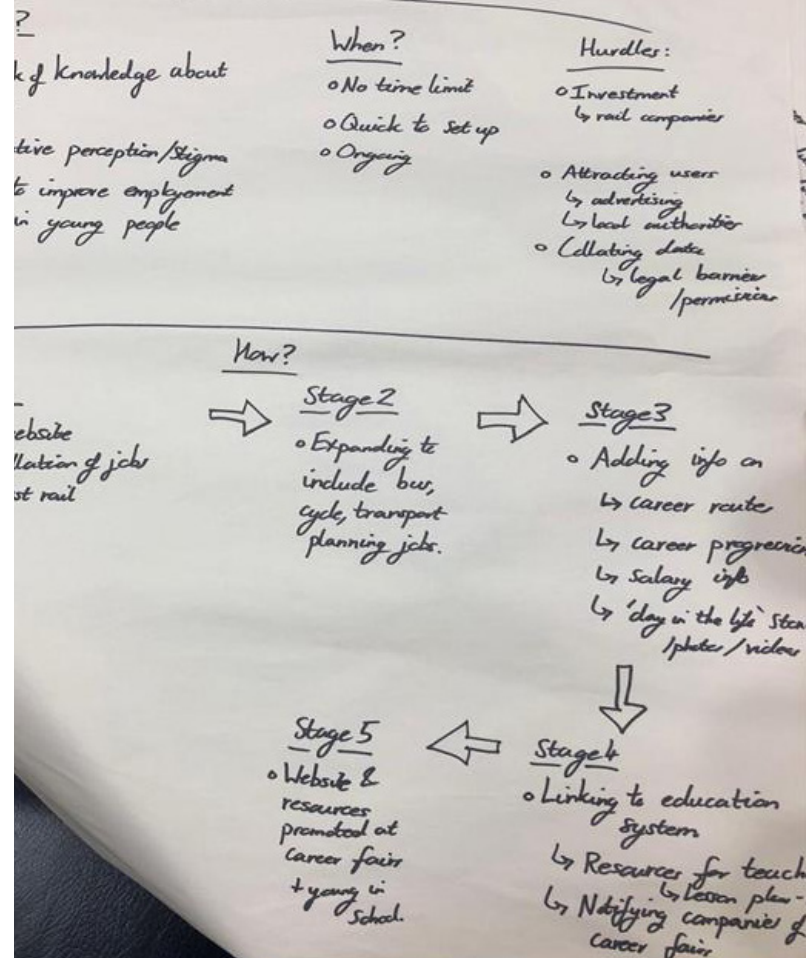 ?
k of knowledge about
tive perception/stigma
to improve employment
in young people
When?
o No time limit
o Quick to set up
o Ongoing
Hurdles:
o Investment
↳ rail companies
o Attracting users
↳ advertising
↳ local authorities
o Collating data
↳ legal barrier
/permission
How?
ebsite
llation of jobs
st rail
⇨
Stage 2
o Expanding to
include bus,
cycle, transport
planning jobs.
⇨
Stage 3
o Adding info on
↳ career route
↳ career progression
↳ salary info
↳ 'day in the life'
/photos/videos
⇩
Stage 4
o Linking to education
system
↳ Resources for teach
↳ lesson plan-
↳ Notifying companies of
career fairs
⇦
Stage 5
o Website &
resources
promoted at
career fairs
+ young in
school.